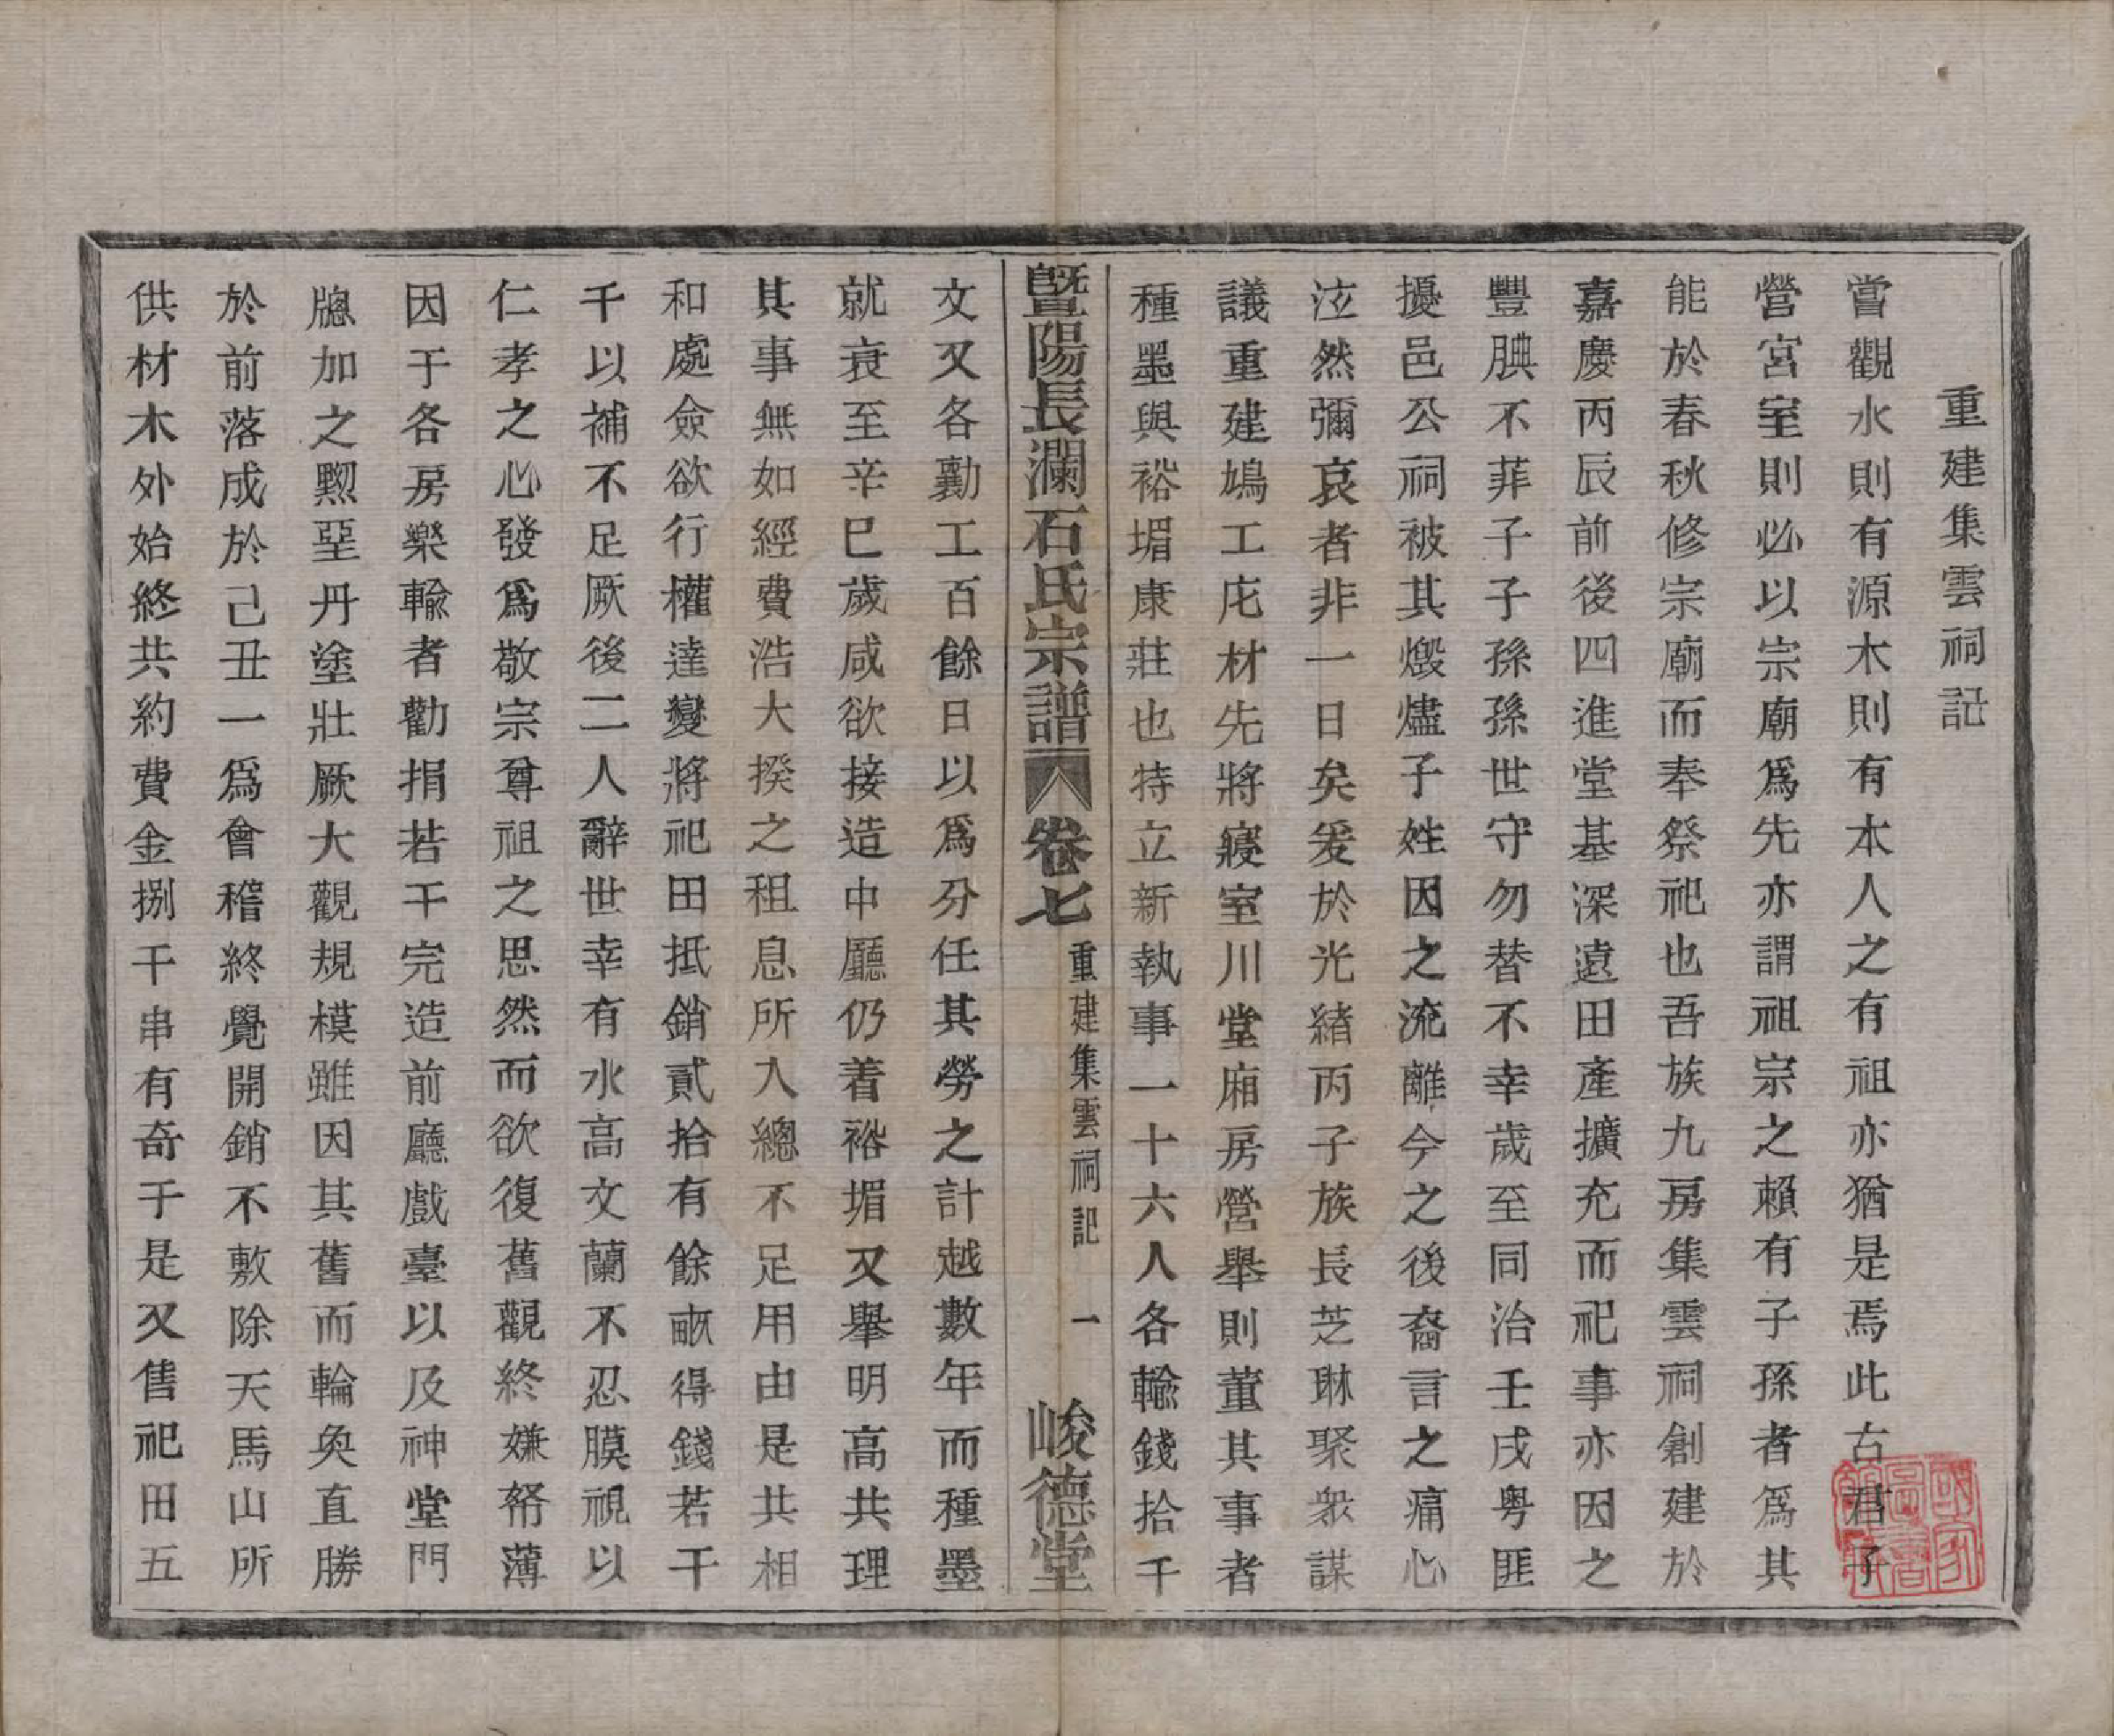 重建集雲祠記
嘗觀水則有源木則有本人之有祖亦猶是焉此古君子
營宮室則必以宗廟爲先亦謂祖宗之賴有子孫者爲其
能於春秋修宗廟而奉祭祀也吾族九房集雲祠創建於
嘉慶丙辰前後四進堂基深遠田產擴充而祀事亦因之
豐腆不菲子子孫孫世守勿替不幸歲至同治壬戌粤匪
擾邑公祠被其燬燼子姓因之流離今之後裔言之痛心
泫然彌哀者非一日矣爰於光緒丙子族長芝琳聚衆謀
議重建鳩工庀材先將寢室川堂廂房營舉則董其事者
種墨與裕堳康莊也特立新執事一十六人各輸錢拾千
暨陽長瀾石氏宗譜 卷七 重建集雲祠記 一 峻德堂
文又各勷工百餘日以爲分任其勞之計越數年而種墨
就衰至辛巳歲咸欲接造中廳仍着裕堳又舉明高共理
其事無如經費浩大揆之租息所入總不足用由是共相
和處僉欲行權達變將祀田抵銷貳拾有餘畝得錢若干
千以補不足厥後二人辭世幸有水高文蘭不忍膜視以
仁孝之心發爲敬宗尊祖之思然而欲復舊觀終嫌帑薄
因于各房樂輸者勸捐若干完造前廳戲臺以及神堂門
牕加之黝堊丹塗壯厥大觀規模雖因其舊而輪奐直勝
於前落成於己丑一爲會稽終覺開銷不敷除天馬山所
供材木外始終共約費金捌千串有奇于是又售祀田五